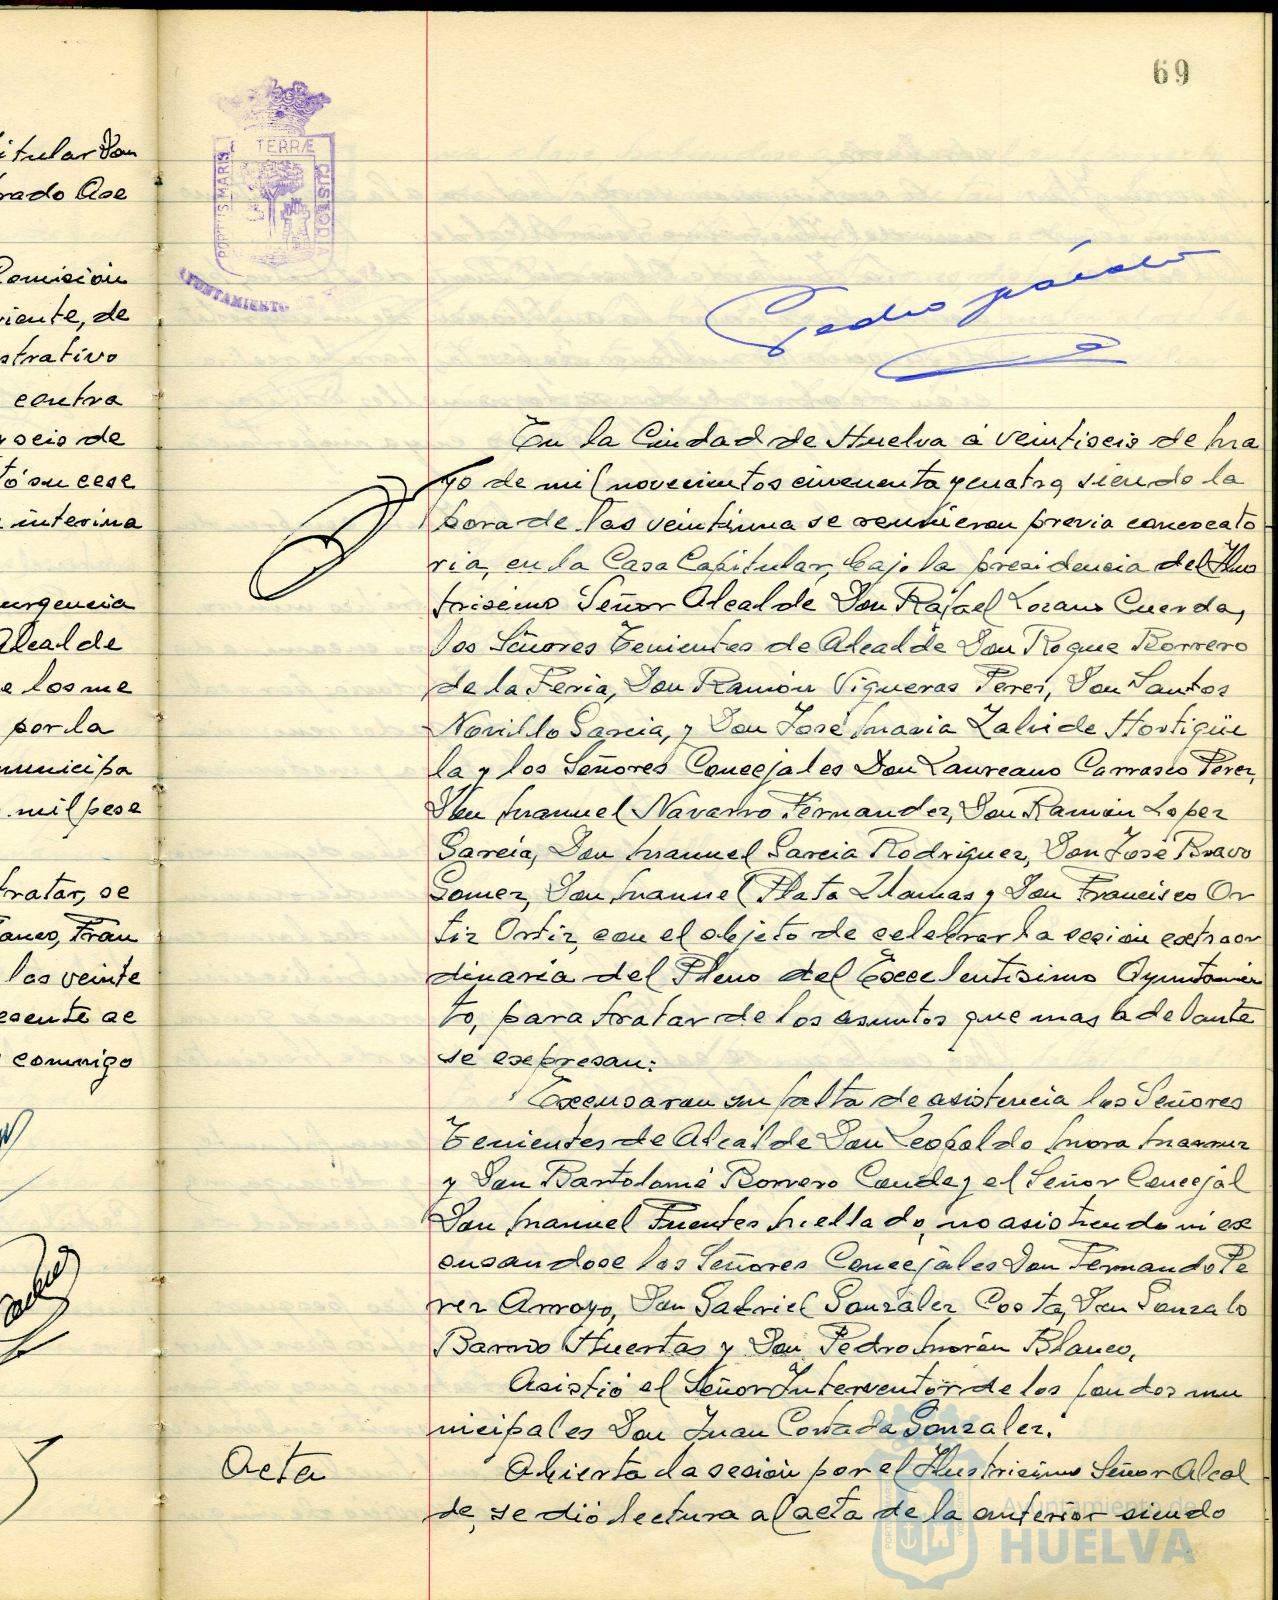 69
itular Don
rado Ase
Comisión
riente, de
strativo
contra
y seis de
tó su cese
interina
urgencia
Alcalde
e los me
por la
municipa
mil pese
tratar, se
Fran
las veinte
esente ac
conmigo
PORTUS MARIS TERRÆ CUSTODIA
AYUNTAMIENTO
Pedro
En la Ciudad de Huelva á veintiseis de ma
yo de mil novecientos cincuenta y cuatro, siendo la
hora de las veintiuna se reunieron previa convocato
ria, en la Casa Capitular, bajo la presidencia del Ilus
trisimo Señor Alcalde Don Rafael Lozano Cuerda,
los Señores Tenientes de Alcalde Don Roque Borrero
de la Feria, Don Ramón Vigueras Perez, Don Santos
Novillo Garcia, y Don José Maria Zalvide Hortigüe
la y los Señores Concejales Don Laureano Carrasco Perez,
Don Manuel Navarro Fernandez, Don Ramón Lopez
Garcia, Don Manuel Garcia Rodriguez, Don José Bravo
Gomez, Don Manuel Plata Llamas y Don Francisco Or
tiz Ortiz, con el objeto de celebrar la sesión extraor
dinaria del Pleno del Excelentisimo Ayuntamien
to, para tratar de los asuntos que mas adelante
se expresan:
Excusaron su falta de asistencia los Señores
Tenientes de Alcalde Don Leopoldo Mora
y Don Bartolomé Borrero Conde y el Señor Concejal
Don Manuel Fuentes Mellado, no asistiendo ni ex
cusandose los Señores Concejales Don Fernando Pe
rez Arroyo, Don Gabriel Gonzalez Costa, Don Gonzalo
Barrio Huertas y Don Pedro Morón Blanco.
Asistió el Señor Interventor de los fondos mu
nicipales Don Juan Cortada Gonzalez.
Acta
Abierta la sesión por el Ilustrisimo Señor Alcal
de, se dió lectura al acta de la anterior siendo
Ayuntamiento de
HUELVA